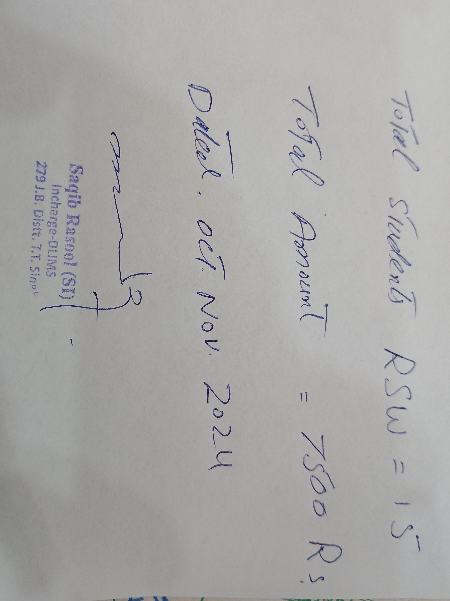 Total Students RSW = 15
Total Amount = 7500 Rs
Dated. oct. Nov. 2024
Saqib Rasool (SI)
Incharge-DIJMS
279 J.B. Distt. T.T.